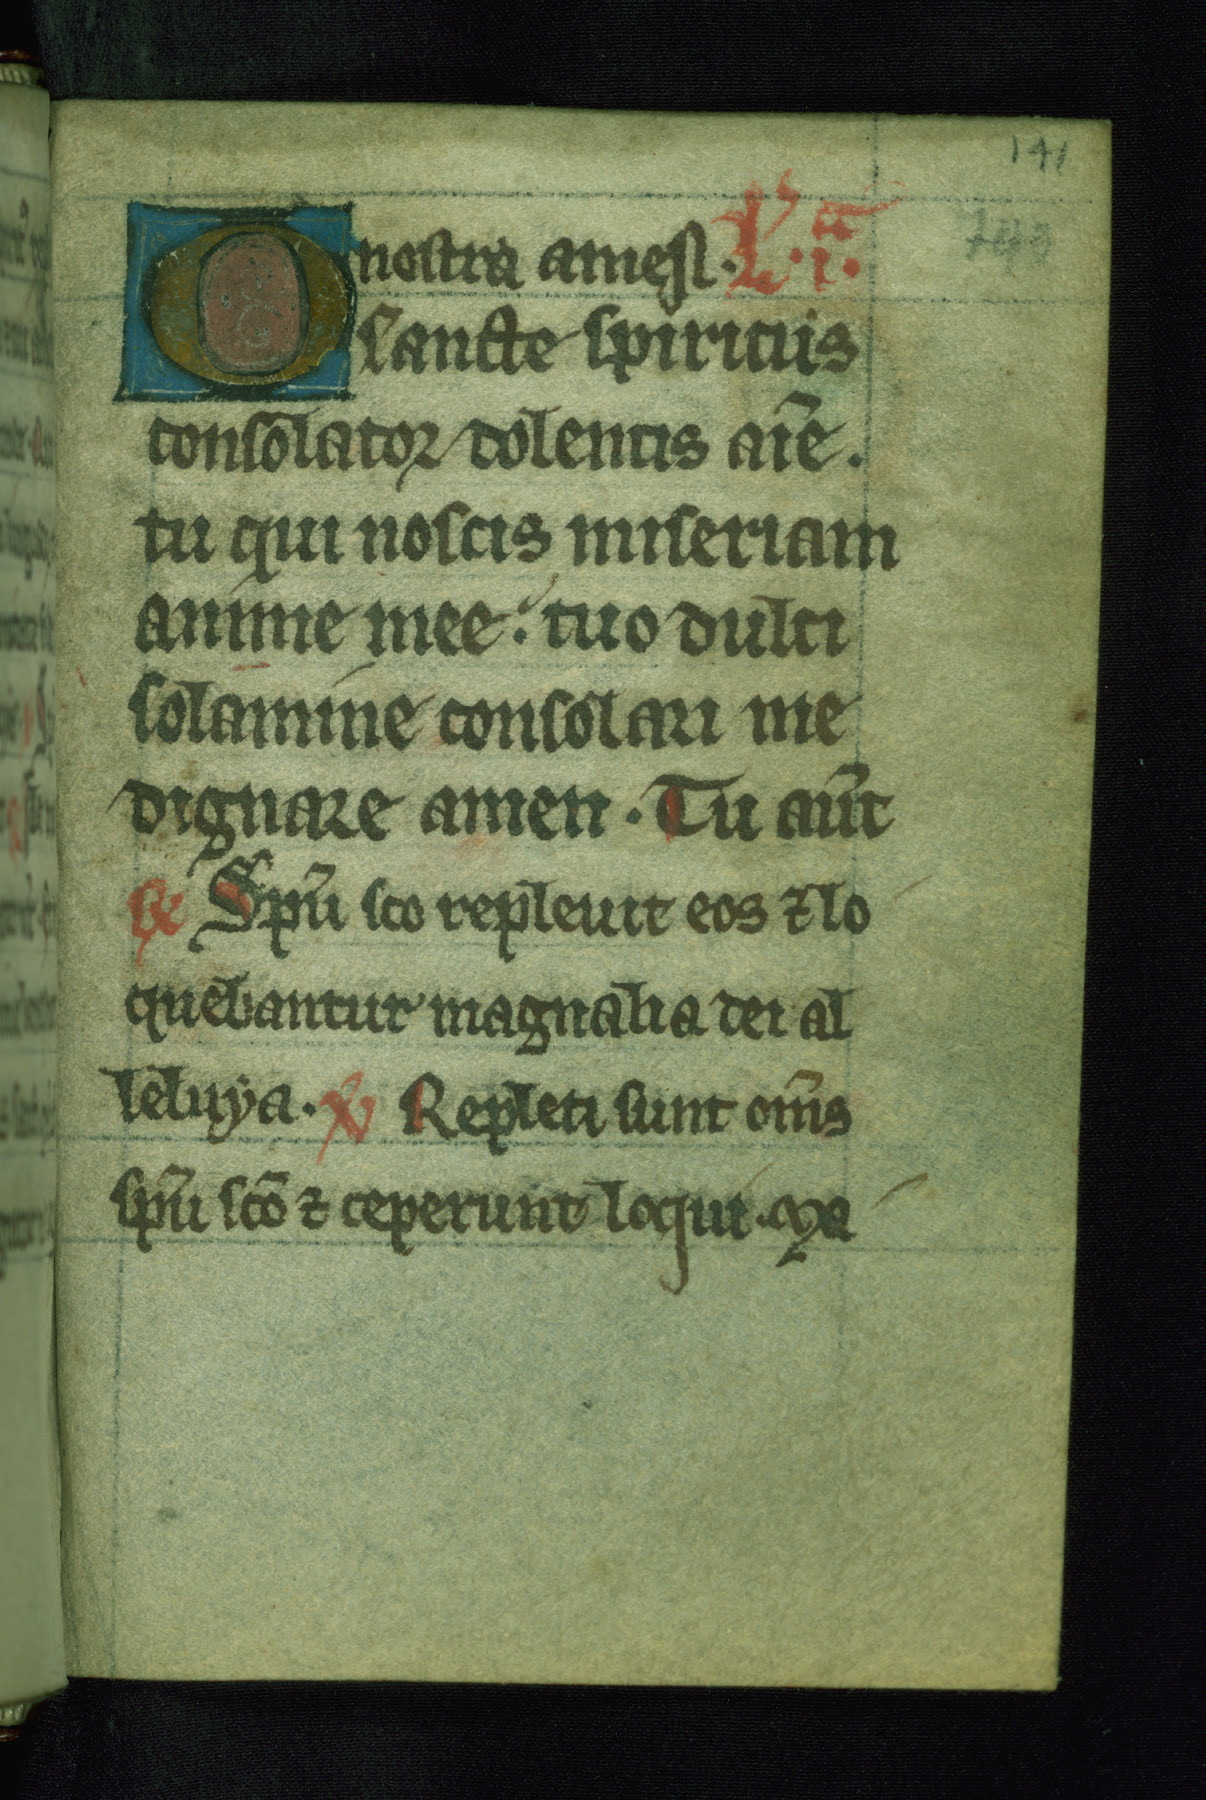 141
nostra amen. L. ii.
O sancte spiritus
consolator dolentis aīe.
tu qui noscis miseriam
anime mee. tuo dulci
solamine consolari me
dignare amen. Tu aūt
℟ Spū sco repleuit eos ⁊ lo
quebantur magnalia dei al
leluya. ℣ Repleti sunt om̄s
spū scō ⁊ ceperunt loqui.